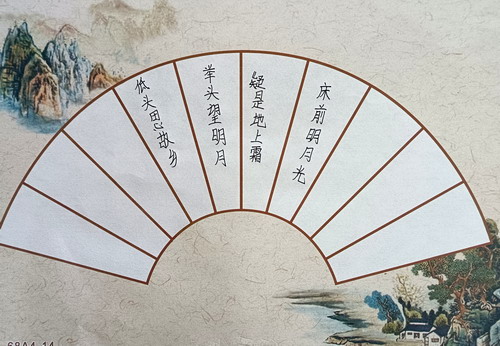 床前明月光
疑是地上霜
举头望明月
低头思故乡
68A4-14